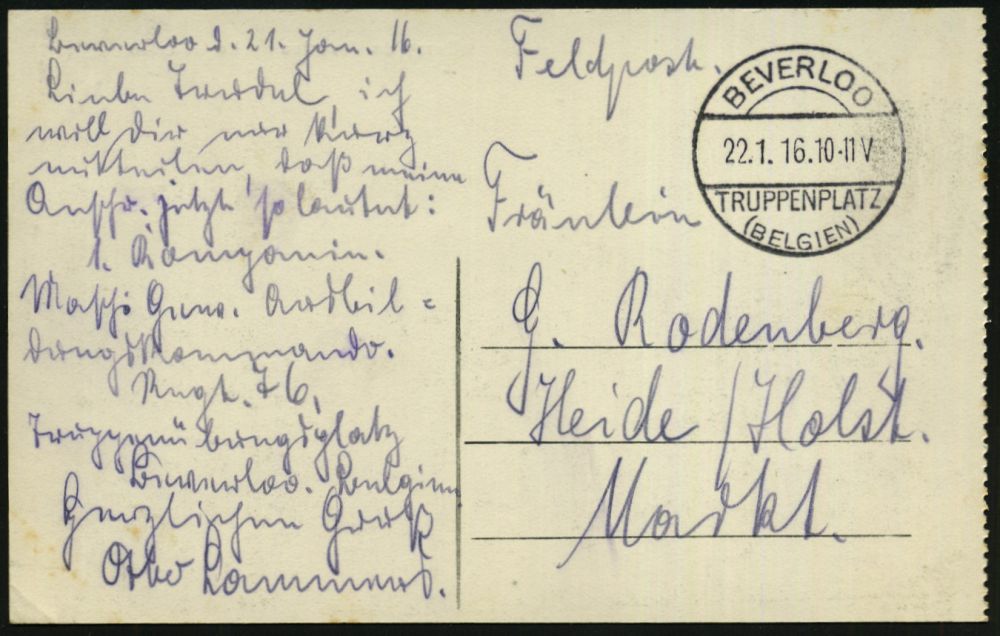 Beverloo d. 21. Jan. 16.
Liebe Trudel, ich
will Dir nur kurz
mitteilen, daß meine
Anschr. jetzt so lautet:
1. Kompanie.
Masch. Gew. Ausbil=
dungskommando.
Rngt. 76,
Truppenübungsplatz
Beverloo. Belgien
Herzlichen Gruß
Otto Lammers.
Feldpost.
Fräulein
G. Rodenberg.
Heide / Holst.
Markt.
BEVERLOO
22.1. 16.10-11V
TRUPPENPLATZ
(BELGIEN)